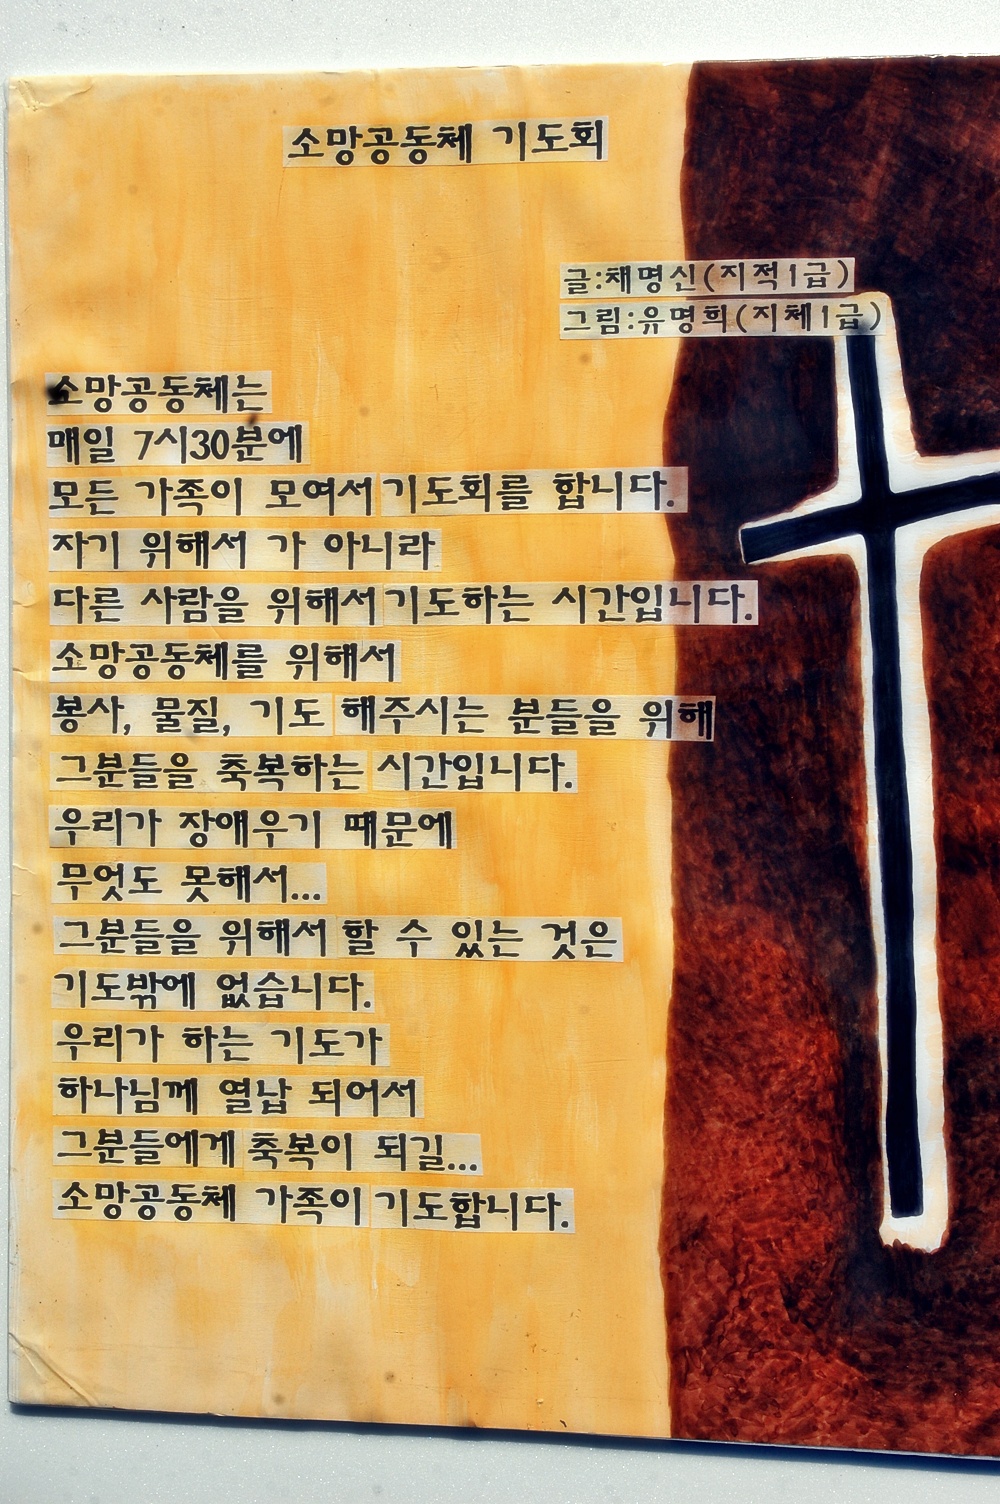 소망공동체 기도회
글:채명신(지적1급)
그림:유명희(지체1급)
소망공동체는
매일 7시30분에
모든 가족이 모여서 기도회를 합니다.
자기 위해서 가 아니라
다른 사람을 위해서 기도하는 시간입니다.
소망공동체를 위해서
봉사, 물질, 기도 해주시는 분들을 위해
그분들을 축복하는 시간입니다.
우리가 장애우기 때문에
무엇도 못해서...
그분들을 위해서 할 수 있는 것은
기도밖에 없습니다.
우리가 하는 기도가
하나님께 열납 되어서
그분들에게 축복이 되길...
소망공동체 가족이 기도합니다.